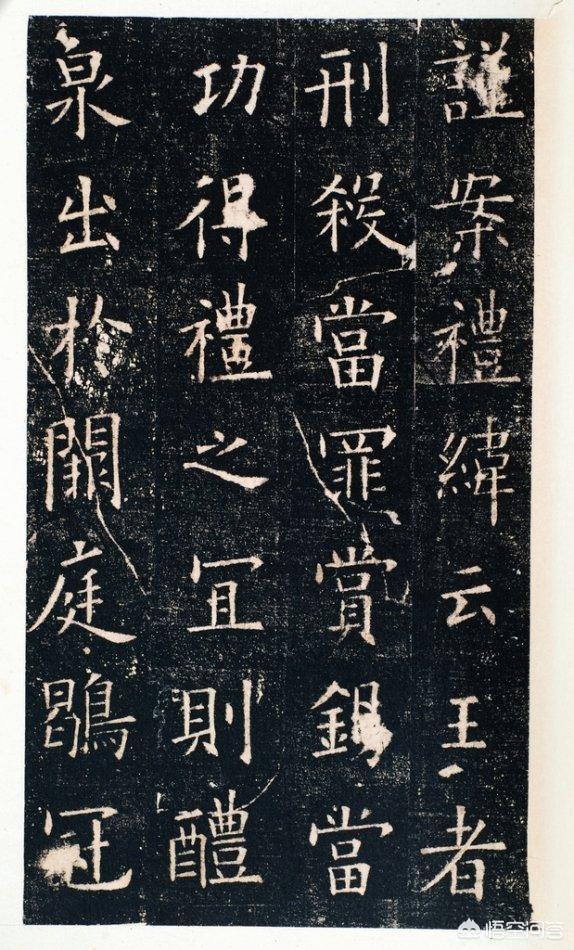 謹案禮緯云王者
刑殺當罪賞錫當
功得禮之宜則醴
泉出於闕庭鶡冠
悟空问答